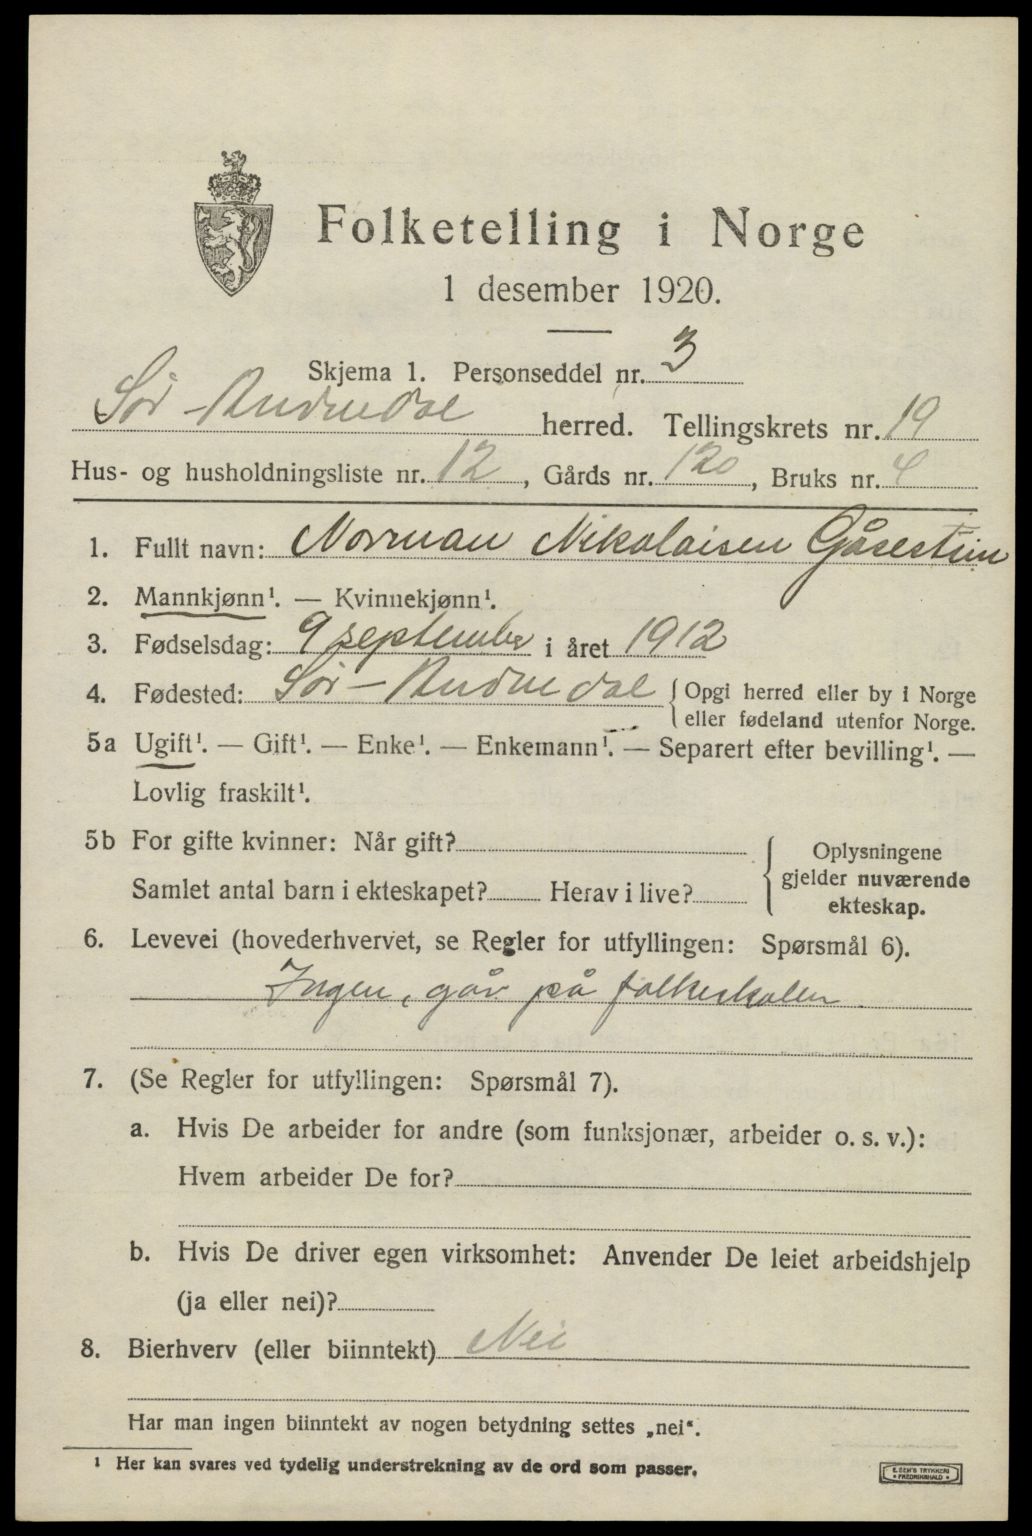 Folketelling i Norge
1 desember 1920.
Skjema 1. Personseddel nr. 3
Sør-Audnedal herred. Tellingskrets nr. 19
Hus- og husholdningsliste nr. 12, Gårds nr. 120, Bruks nr. 4
1. Fullt navn: Norman Nikolaisen Gåsestein
2. Mannkjønn¹. — Kvinnekjønn¹.
3. Fødselsdag: 9 september i året 1912
4. Fødested: Sør-Audnedal { Opgi herred eller by i Norge
eller fødeland utenfor Norge.
5a Ugift¹. — Gift¹. — Enke¹. — Enkemann¹. — Separert efter bevilling¹. —
Lovlig fraskilt¹.
5b For gifte kvinner: Når gift?
Samlet antal barn i ekteskapet? Herav i live?
} Oplysningene
gjelder nuværende
ekteskap.
6. Levevei (hovederhvervet, se Regler for utfyllingen: Spørsmål 6).
Ingen, går på folkeskolen
7. (Se Regler for utfyllingen: Spørsmål 7).
a. Hvis De arbeider for andre (som funksjonær, arbeider o. s. v.):
Hvem arbeider De for?
b. Hvis De driver egen virksomhet: Anvender De leiet arbeidshjelp
(ja eller nei)?
8. Bierhverv (eller biinntekt) Nei
Har man ingen biinntekt av nogen betydning settes „nei“.
¹ Her kan svares ved tydelig understrekning av de ord som passer.
E. SEM'S TRYKKERI
FREDRIKSHALD